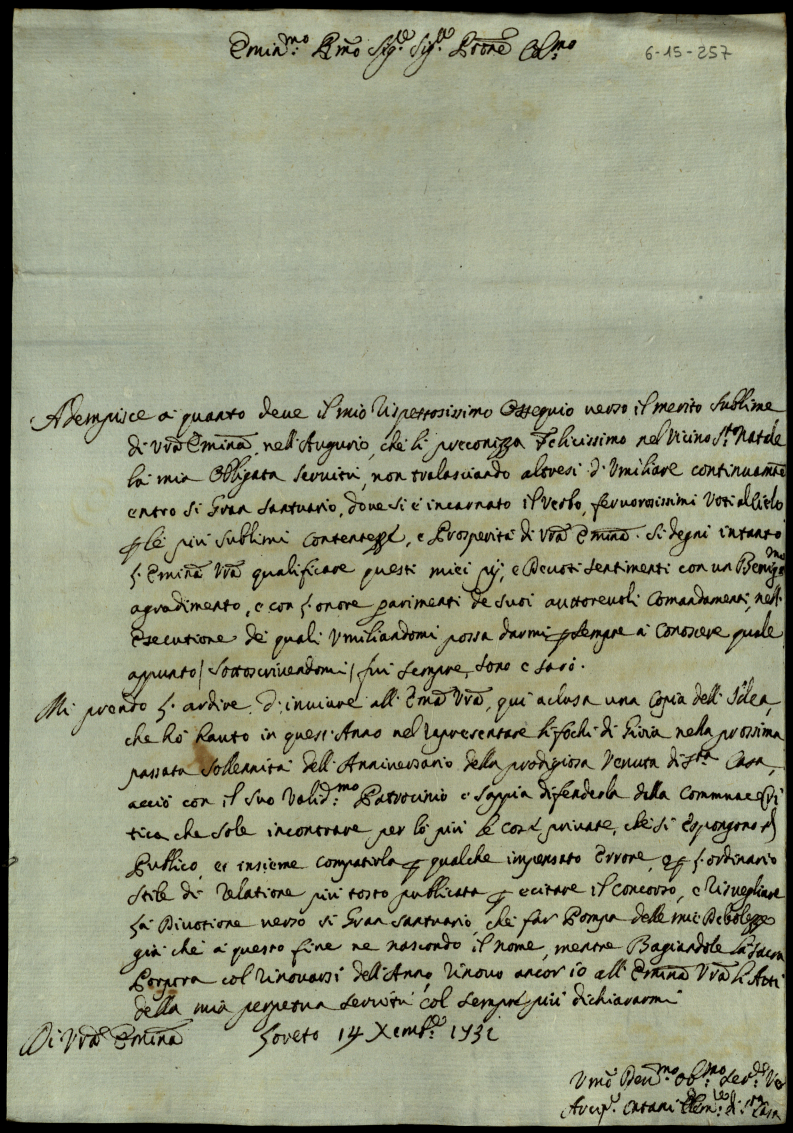 Emin:mo Rmo Sig:re Sig:re Prone Col:mo
6-15-257
Adempisce à quanto deve il mio rispettosissimo Ossequio verso il merito sublime
di Vra Emina, nell'Augurio, che li preconizza Felicissimo nel Vicino Sto Natale
la mia Obbligata servitù, non tralasciando altresi d'Vmiliare continuamte
entro si Gran Santuario, dove si è incarnato il Verbo, fervorosissimi Voti al Cielo
le più sublimi contentezze, e Prosperità di Vra Emina. Si degni intanto
l'Emina Vra qualificare questi miei pij, e Devoti sentimenti con un Benigmo
agradimento, e con l'onore parimenti de suoi auttorevoli Comandamenti, nell'
Esecutione de quali Vmiliandomi possa darmi sempre à Conoscere quale
appunto/ sottoscrivendomi/ fui sempre, sono e sarò.
Mi prendo l'ardire d'inviare all'Ema Vra, qui aclusa una Copia dell'Idea,
che hò hauto in quest'Anno nel rapresentare li fochi di Gioia nella prossima
passata sollennità dell'Anniversario della prodigiosa Venuta di Sta Casa,
acciò con il suo Valid:mo Patrocinio e sappia difenderla dalla Commune Cri
tica che sole incontrare per lo più le cose private, che si Espongono al
Publico, et insieme compatirla qualche impensato Errore, l'ordinario
stile di relatione più tosto publicata ecitare il concorso, e risvegliare
la Divotione verso si Gran santuario, che far Pompa delle mie Debolezze
già che à questo fine ne nascondo il nome, mentre Bagiandole la sacra
Porpora col rinovarsi dell'Anno, rinovo ancor io all'Emina Vra li Atti
della mia perpetua servitù col sempre più dichiararmi
Di Vra Emina Loreto 14 Xembre 1731
Vmo Dev:mo Ob:mo Ser:
di Sta Casa